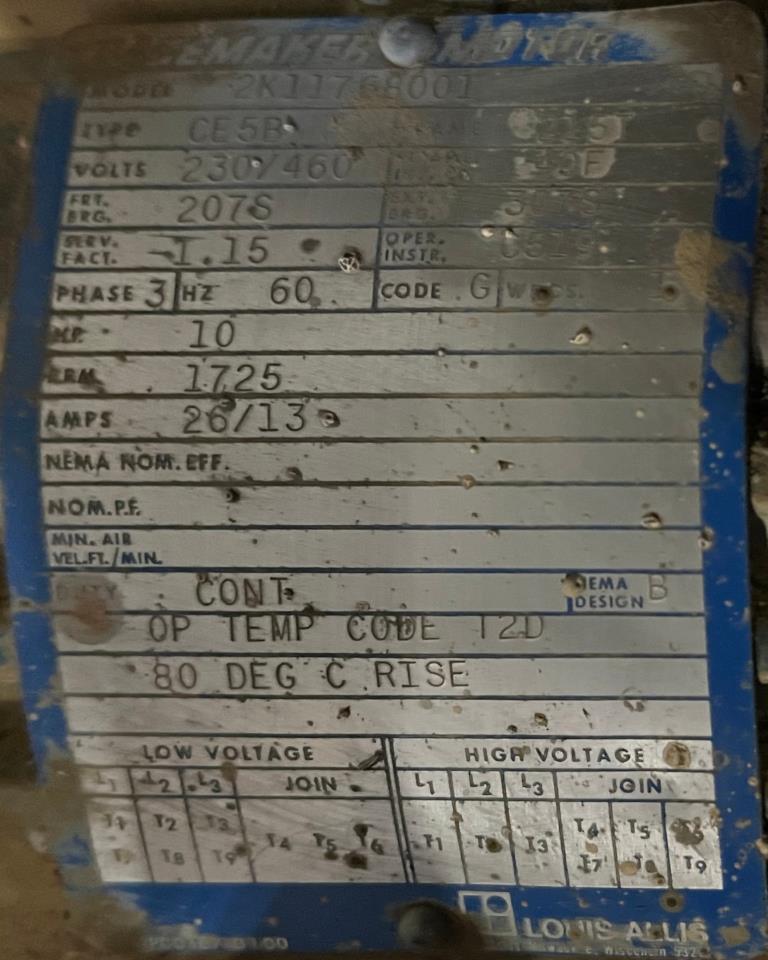 PACEMAKER MOTOR
MODEL 2K11768001
TYPE CE5B FRAME
VOLTS 230/460
FRT. BRG. 207S EXT. BRG.
SERV. FACT. 1.15 OPER. INSTR.
PHASE 3 HZ 60 CODE G
HP. 10
RPM 1725
AMPS 26/13
NEMA NOM. EFF.
NOM. P.F.
MIN. AIR
VEL.FT./MIN.
DUTY CONT. NEMA DESIGN B
OP TEMP CODE T2D
80 DEG C RISE
LOW VOLTAGE HIGH VOLTAGE
L1 L2 L3 JOIN L1 L2 L3 JOIN
T1 T2 T3 T4 T5 T6 T1 T3 T4 T5
T8 T9 T7 T8 T9
LOUIS ALLIS